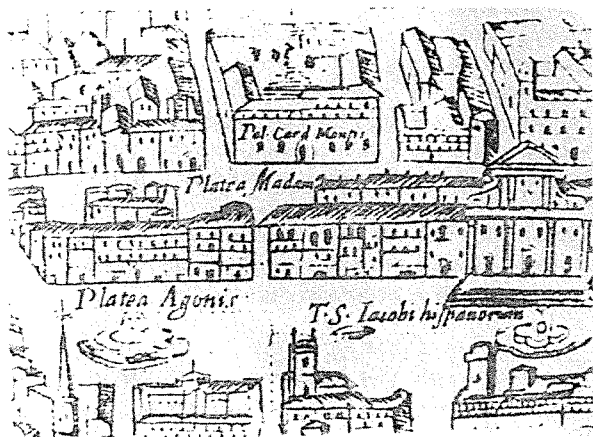 Pal. Card Montis
Platea Madam
Platea Agonis
T. S. Iacobi hispanorum